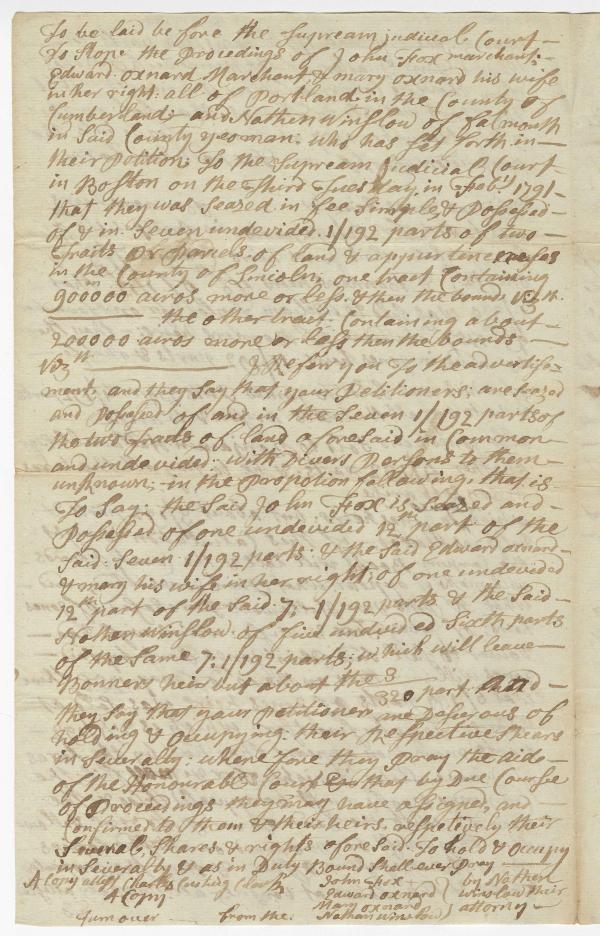 To be laid be fore the Supream judical Court
To Stope the Procedings of John Fox marchant
Edward oxnard Marchant & mary oxnard his wife
in her right: all of Portland in the County of
Cumberland and Nathen Winslow of Falmouth
in Said County yeoman: who has Set forth in
their Petition: To the Supream Judicial Court
in Boston on the Third Tuesday in Feby 1791
that they was Seazed in fee Simple & Possesed
of & in Seven undevided 1/192 parts of two
Traits or Parcels of land & appurtinences
in the County of Lincoln; one tract Containing
900000 acros more or less & then the bounds viz
the other tract Containing about
200000 acros more or less then the bounds
viz I Referr you To the advertise
ment, and they Say that your Petitioners: are Seazed
and Possesed of and in the Seven 1/192 parts of
the two Tracts of land aforesaid in Common
and undevided: with Divers Persons to them
unknown; in the Propotion following. that is
To Say: the Said John Fox is Seazed and
Possesed of one undevided 12th part of the
Said Seven 1/192 parts & the Said Edward oxnard
& mary his wife in her right; of one undevided
12th part of the Said 7; 1/192 parts & the Said
Nathen Winslow of five undivided Sixth parts
of the Same 7: 1/192 parts; which will leave
Bonners heir but about the 3/320 part. And
they Say that your Petitioners are Deserous of
holding & Occupying their Respective Shears
in Severalty: where fore they Pray the aide
of the Honourabl Court & that by Due Course
of Proceedings they may have asigned, and
Confirmed to them & their heirs, respetively their
Several, Shares & rights afore Said. To hold & Occupy
in Severalty & as in Duty Bound Shall ever Pray
A Copy attest Charls Cushing Clark
A Copy
John Fox
Edward oxnard
Mary oxnard
Nathan Winslow
by Nathen
Winslow their
attorney
turn over from the: